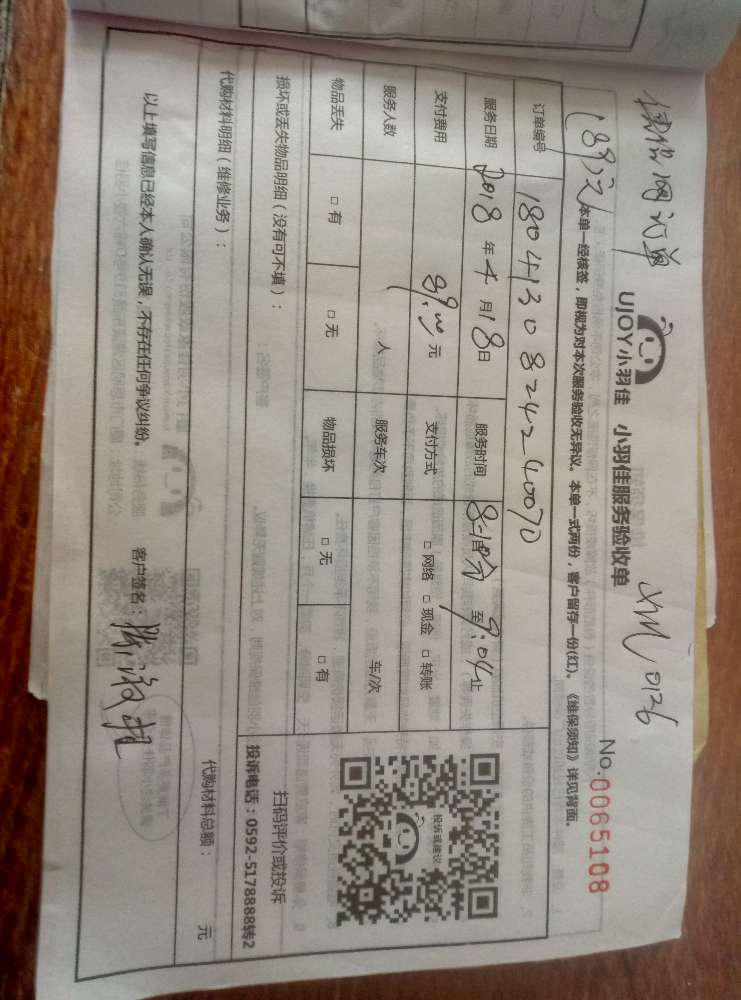 网订单
(89)元
UJOY小羽佳 小羽佳服务验收单
No.0065108
本单一经核签，即视为对本次服务验收无异议。本单一式两份，客户留存一份(红)。《维保须知》详见背面。
订单编号 1804130824240070
服务日期 2018年4月18日 服务时间 至9:04止
支付费用 89.00元 支付方式 □网络 □现金 □转账
服务人数 人 服务车次 车/次
物品丢失 □有 □无 物品损坏 □无 □有
投诉或建议
扫码评价或投诉
损坏或丢失物品明细（没有可不填）：
投诉电话：0592-5178888转2
代购材料明细（维修业务）： 代购材料总额： 元
以上填写信息已经本人确认无误，不存在任何争议纠纷。 客户签名：